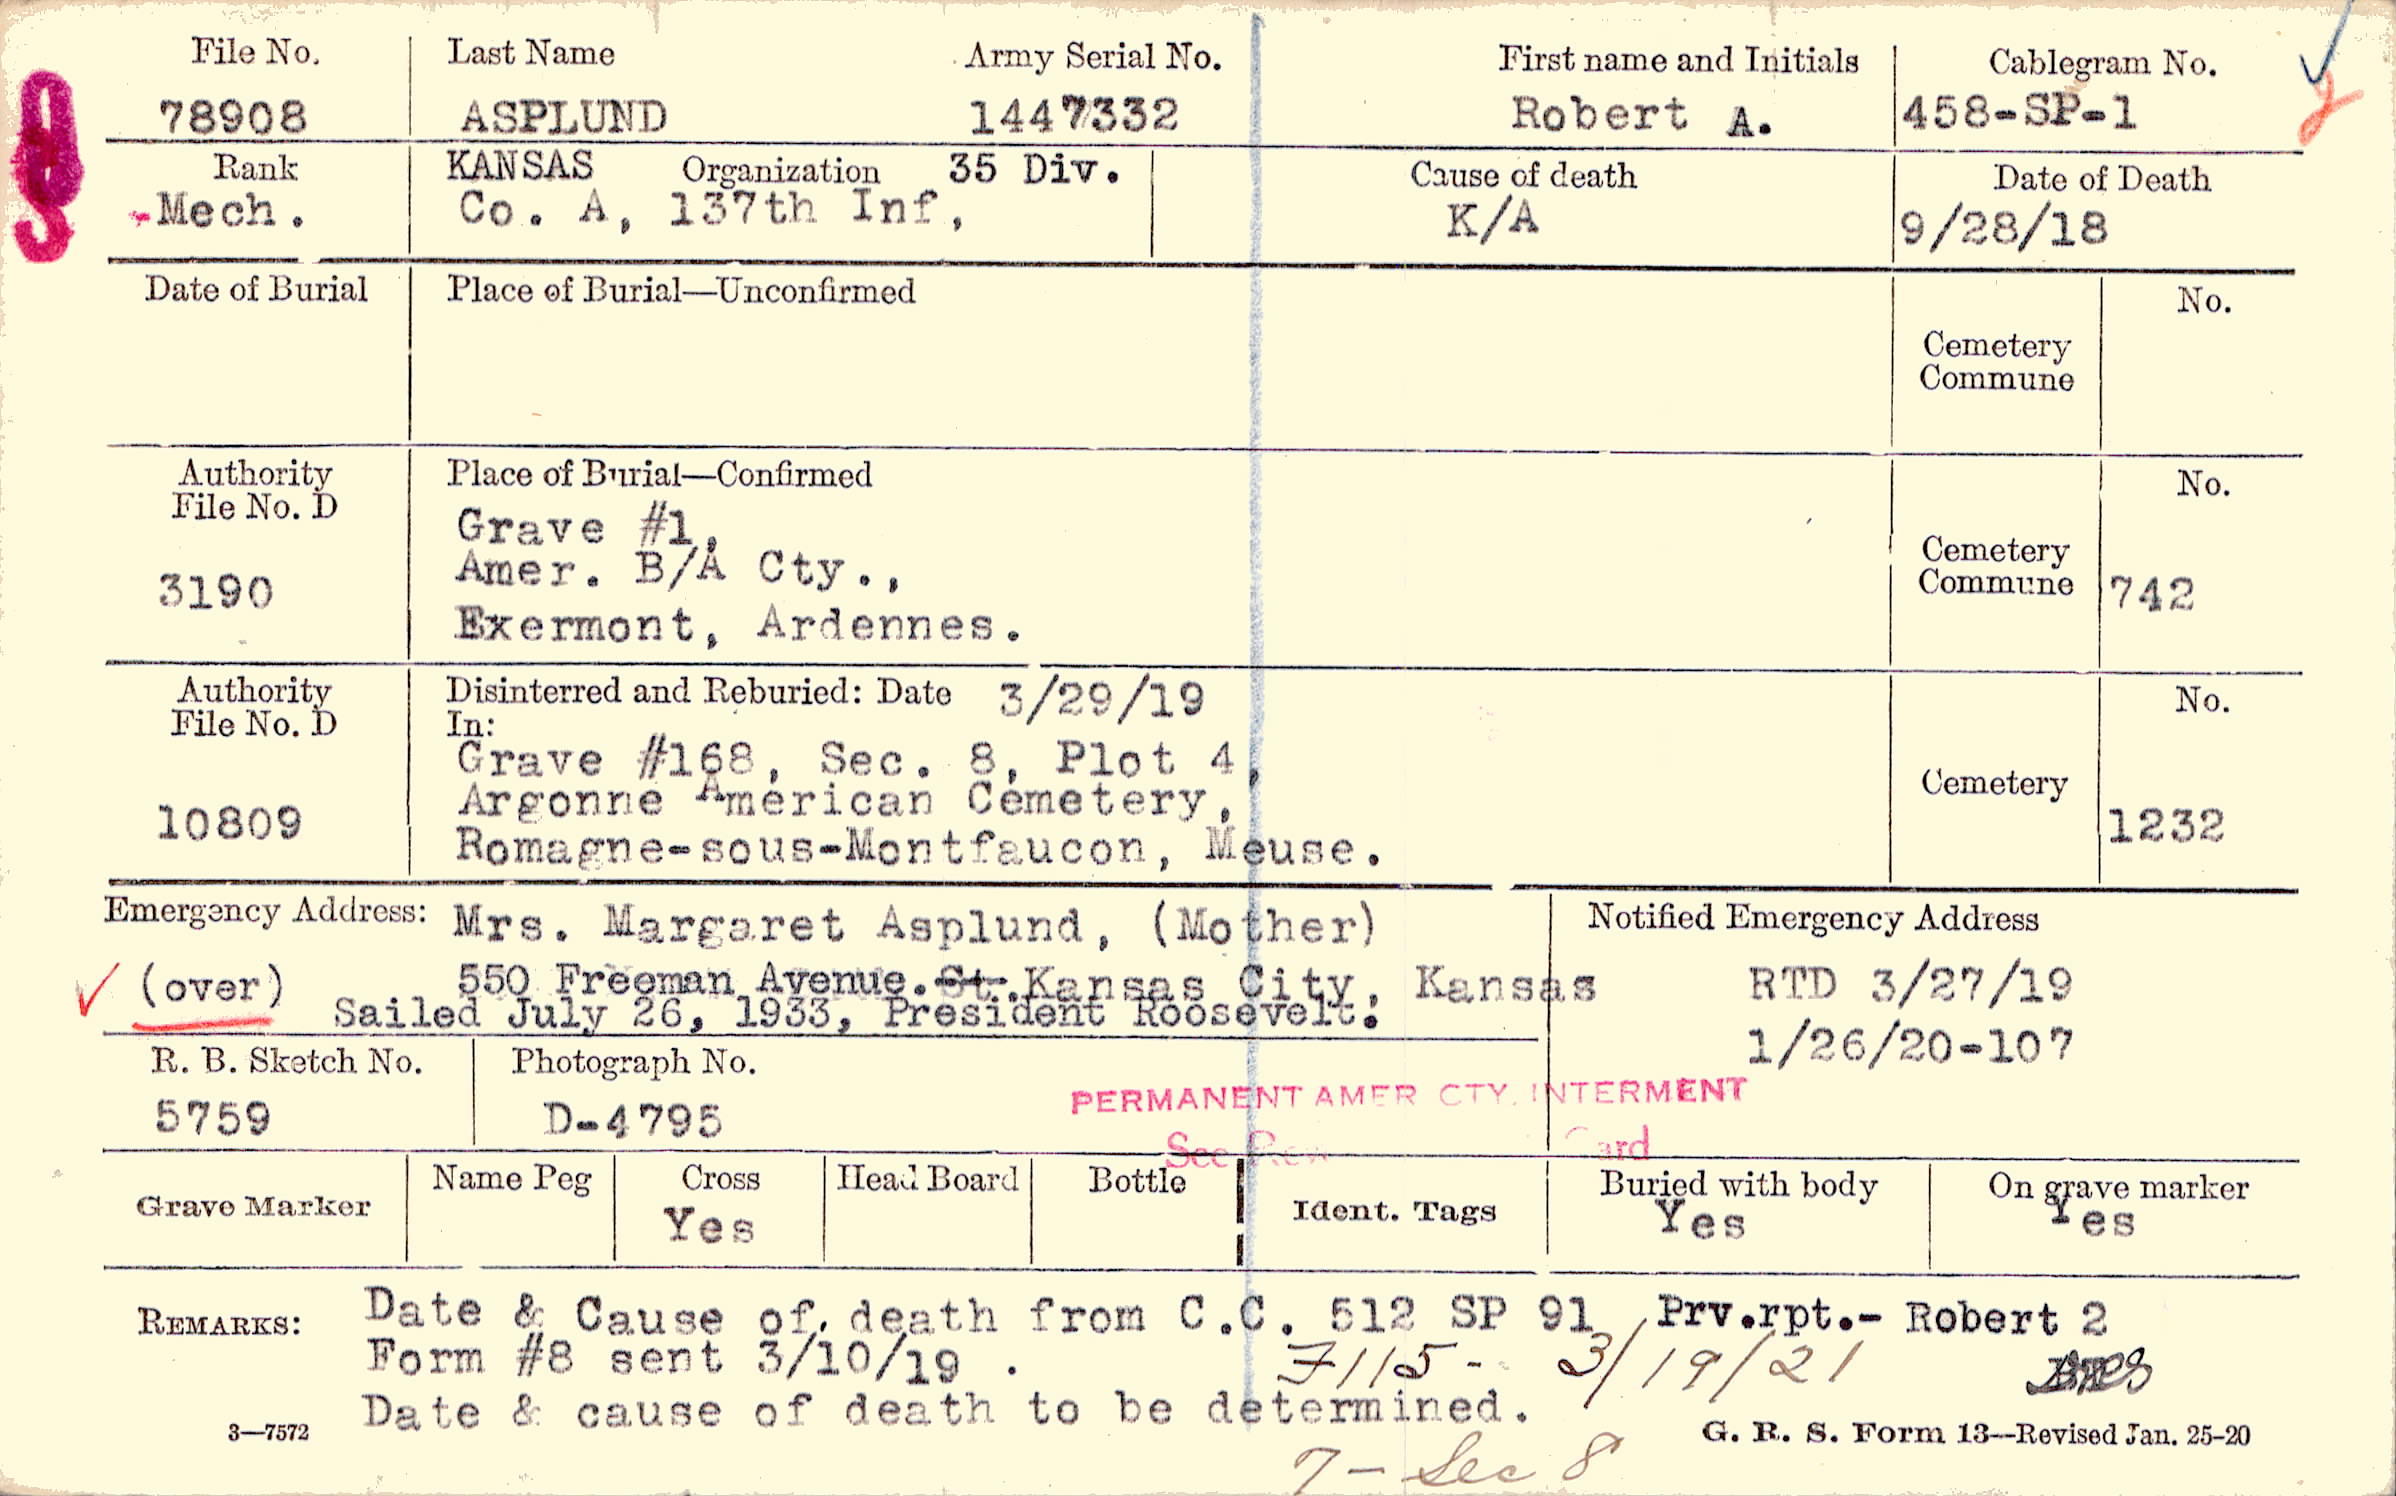 File No. Last Name Army Serial No. First name and Initials Cablegram No.
78908 ASPLUND 1447332 Robert A. 458-SP-1
Rank KANSAS Organization 35 Div. Cause of death Date of Death
Mech. Co. A, 137th Inf, K/A 9/28/18
Date of Burial Place of Burial—Unconfirmed No.
Cemetery
Commune
Authority Place of Burial—Confirmed No.
File No. D
Grave #1,
Amer. B/A Cty., Cemetery
3190 Commune 742
Exermont, Ardennes.
Authority Disinterred and Reburied: Date 3/29/19 No.
File No. D In:
Grave #168, Sec. 8, Plot 4,
Argonne American Cemetery, Cemetery
10809 1232
Romagne-sous-Montfaucon, Meuse.
Emergency Address: Mrs. Margaret Asplund, (Mother) Notified Emergency Address
(over) 550 Freeman Avenue. St. Kansas City, Kansas RTD 3/27/19
Sailed July 26, 1933, President Roosevelt.
1/26/20-107
R. B. Sketch No. Photograph No.
PERMANENT AMER CTY. INTERMENT
5759 D-4795
See
Grave Marker Name Peg Cross Head Board Bottle Ident. Tags Buried with body On grave marker
Yes Yes Yes
REMARKS: Date & Cause of death from C.C. 512 SP 91 Prv.rpt.- Robert 2
Form #8 sent 3/10/19 . 7115- 3/19/21
Date & cause of death to be determined.
3—7572 G. R. S. Form 13—Revised Jan. 25-20
7 - Sec 8